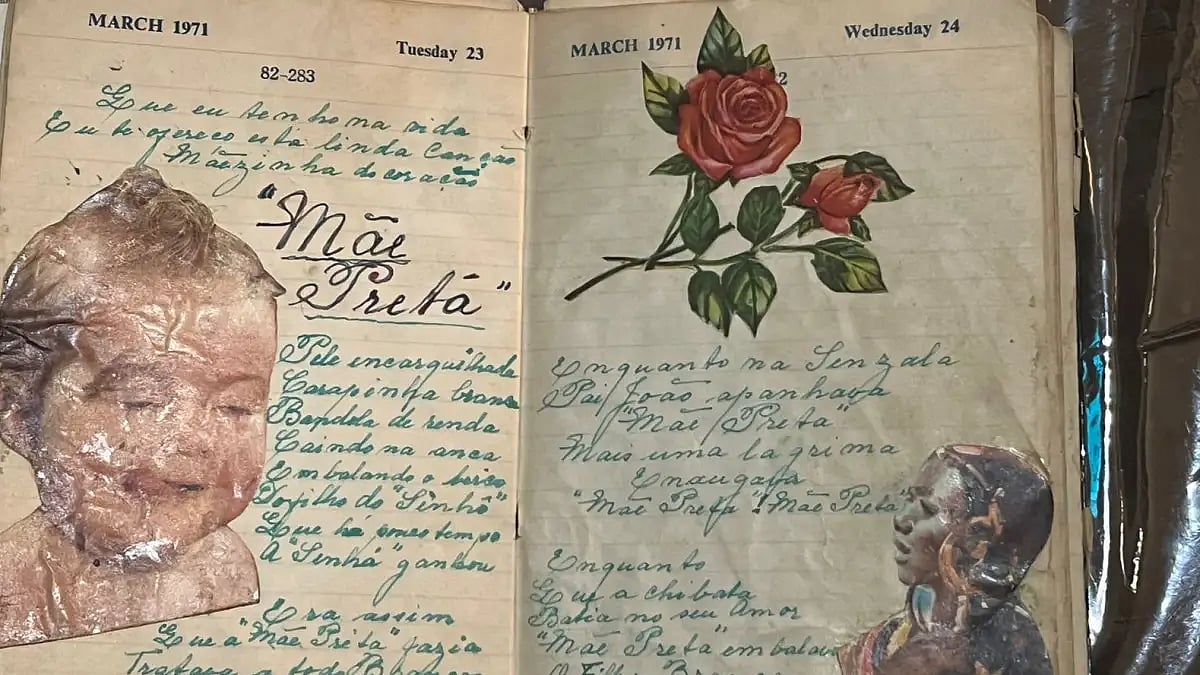 MARCH 1971
Tuesday 23
82-283
Que eu tenho na vida
Eu te ofereço esta linda Canção
Mãezinha do coração
"Mãe
Pretá"
Pele encarquilhada
Carapinha branca
Bandola de renda
Caindo na anca
Embalando o berço
Do filho do "Sinhô"
Que há pouco tempo
A "Sinhá" ganhou
Era assim
Que a "Mãe Preta" fazia
Tratava a todo
MARCH 1971
Wednesday 24
2
Enquanto na Senzala
Pai João apanhava
"Mãe Preta"
Mais uma lagrima
Enxugava
"Mãe Preta"! "Mãe Preta"
Enquanto
Que a chibata
Batia no seu Amor
"Mãe Preta" embalava
O Filho